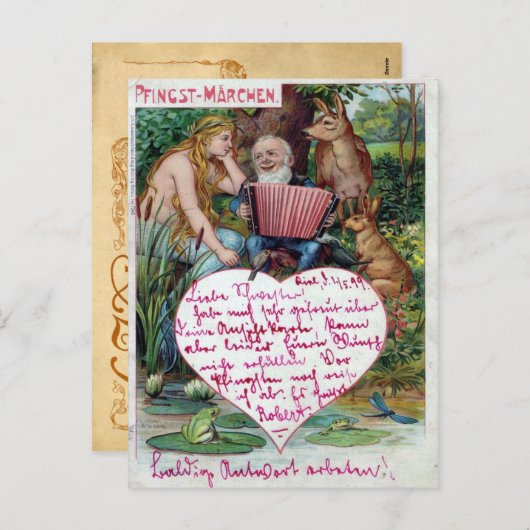 PFINGST-MÄRCHEN.
Kiel, d. 11/5.99.
Liebe Schwester!
habe mich sehr gefreut über
Deine Ansichtskarte, kann
aber leider Euren Wunsch
nicht erfüllen. Vor
Pfingsten noch reise
ich ab. Es grüßt
Robert.
Baldige Antwort erbeten!
Zazzle